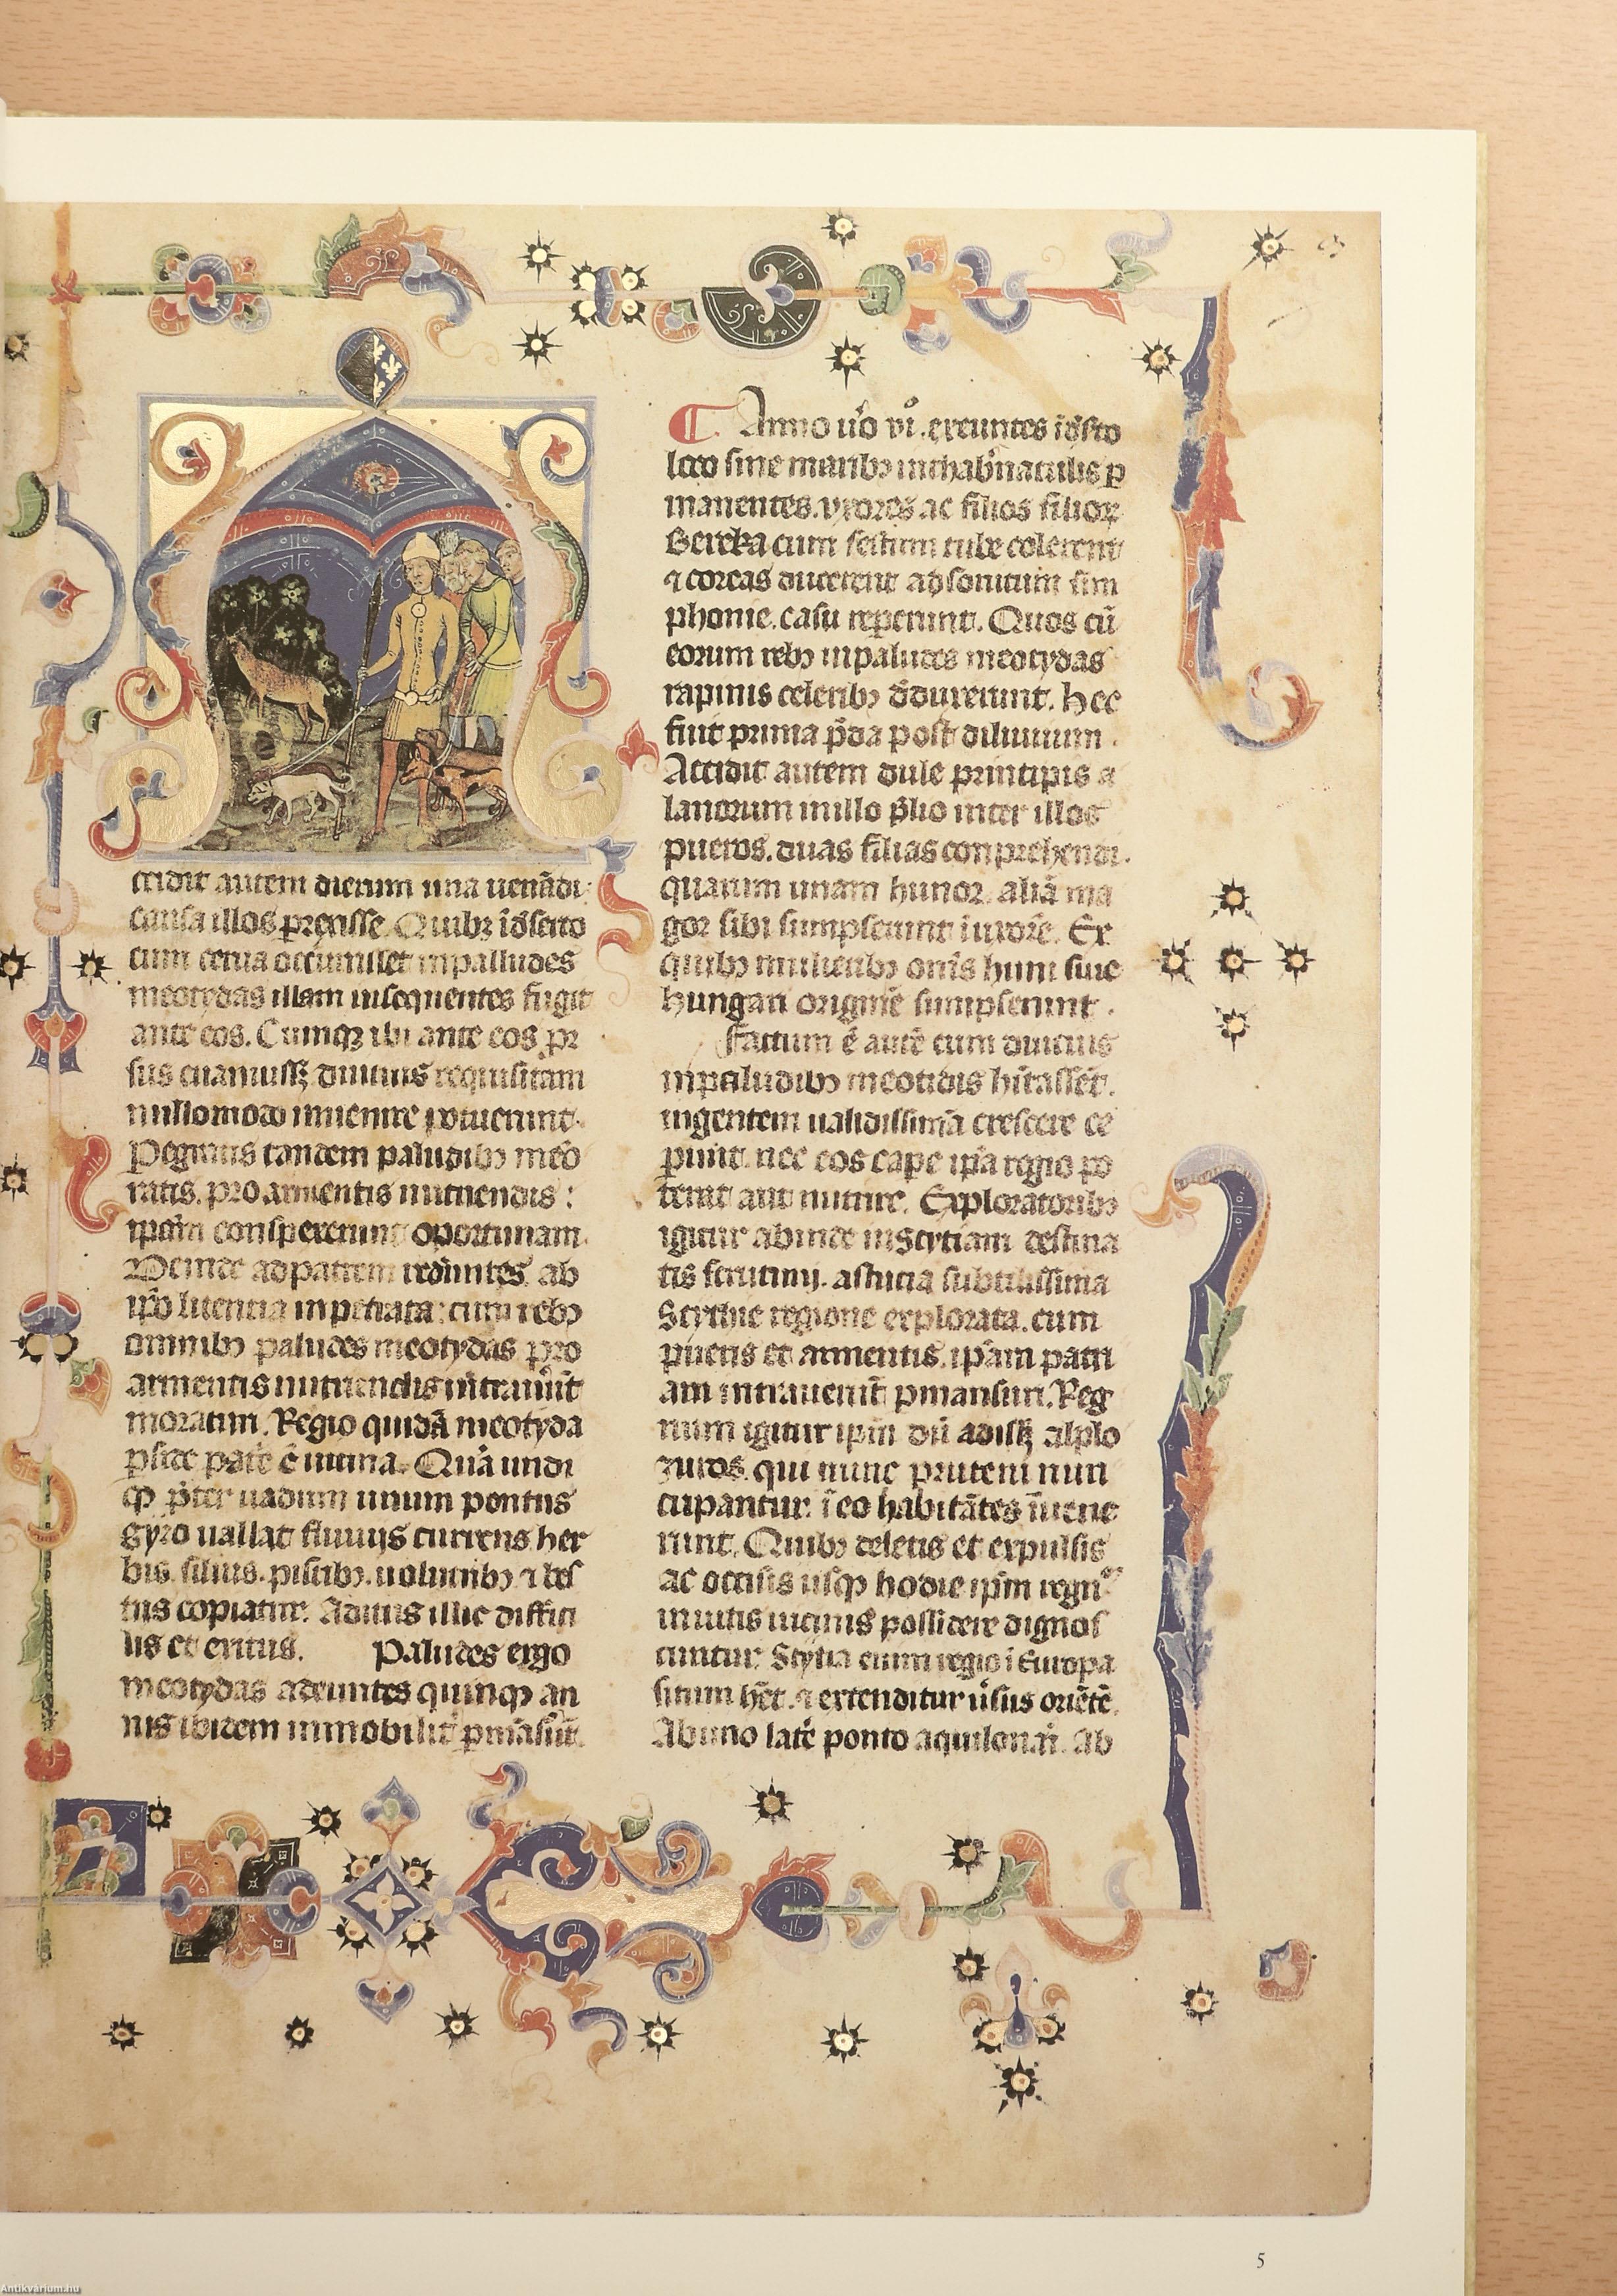 ccidit autem dierum una uenādi
causa illos ꝑrexisse. Quibꝫ ī dserto
cum cerua occurrisset in palludes
meotydas illam insequentes fugit
ante eos. Cumqꝫ ibi ante eos pr
sus euanuissꝫ diuuius requisitam
nullo modo inuenire potuerunt.
Pegratis tandem paludibꝫ meo
ratis. pro armentis nutriendis:
ipām conspexerunt oportunam.
Deinde ad patrem redeuntes, ab
ip̄o licentia inpetrata: cum rebꝫ
omnibꝫ paludes meotydas pro
armentis nutriendis intrauerūt
moraturi. Regio quidā meotyda
ꝑside patͤ ē uicina. Quā undi
qꝫ p̄ter uadum unum pontus
gyro uallat fluuijs currens her
bis. siluis. piscibꝫ. uolucribꝫ ⁊ bes
tiis copiatur. Aditus illic diffici
lis et exitus. Paludes ergo
meotydas adeuntes quinqꝫ an
nis ibidem inmobilit̾ ꝑmāserūt.
Anno u̾o vi̊. exeuntes ī dserto
loco sine maribꝫ in thab̾naculis ꝑ
manentes. vxores ac filios filioꝝ
Bereka cum festum tube colerent
⁊ coreas ducerent ad sonitum sim
phonie. casu repererunt. Quos cū
eorum rebꝫ in paludes meotydas
rapinis celeribꝫ dduxerunt. Hec
fuit prima p̄da post diluuium.
Accidit autem dule principis a
lanorum in illo p̄lio inter illos
pueros. duas filias conprehendi.
quarum unam hunor. aliā ma
gor sibi sumpserunt in uxorē. Ex
quibꝫ mulieribꝫ om̄s huni siue
hungari originē sumpserunt.
Factum ē autē cum diucius
in paludibꝫ meotidis hītassēt.
in gentem ualidissimā crescere ce
perunt. nec eos capeͤ ip̄a regio po
terat aut nutrire. Exploratoribꝫ
igitur abinde in Scytiam destina
tis scrutinij. astucia subtilissima
Scythie regione explorata. cum
pueris et armentis. ip̄am patri
am intrauerūt ꝑmansuri. Reg
num igitur ip̄m dū adissꝫ alplo
zuros. qui nunc pruteni nun
cupantur: ī eo habitātes īuene
runt. Quibꝫ deletis et expulsis
ac occisis usqꝫ hodie ip̄m regnū
inuitis uicinis possidere dignos
cuntur. Scytia enim regio ī Europa
situm hēt. ⁊ extenditur u̾sus oriētē.
Ab uno latͤe ponto aquilonari. Ab
5
Antikvárium.hu